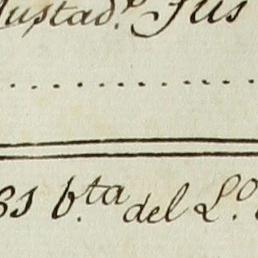 ustad.o Jus
81 b.ta del L.o